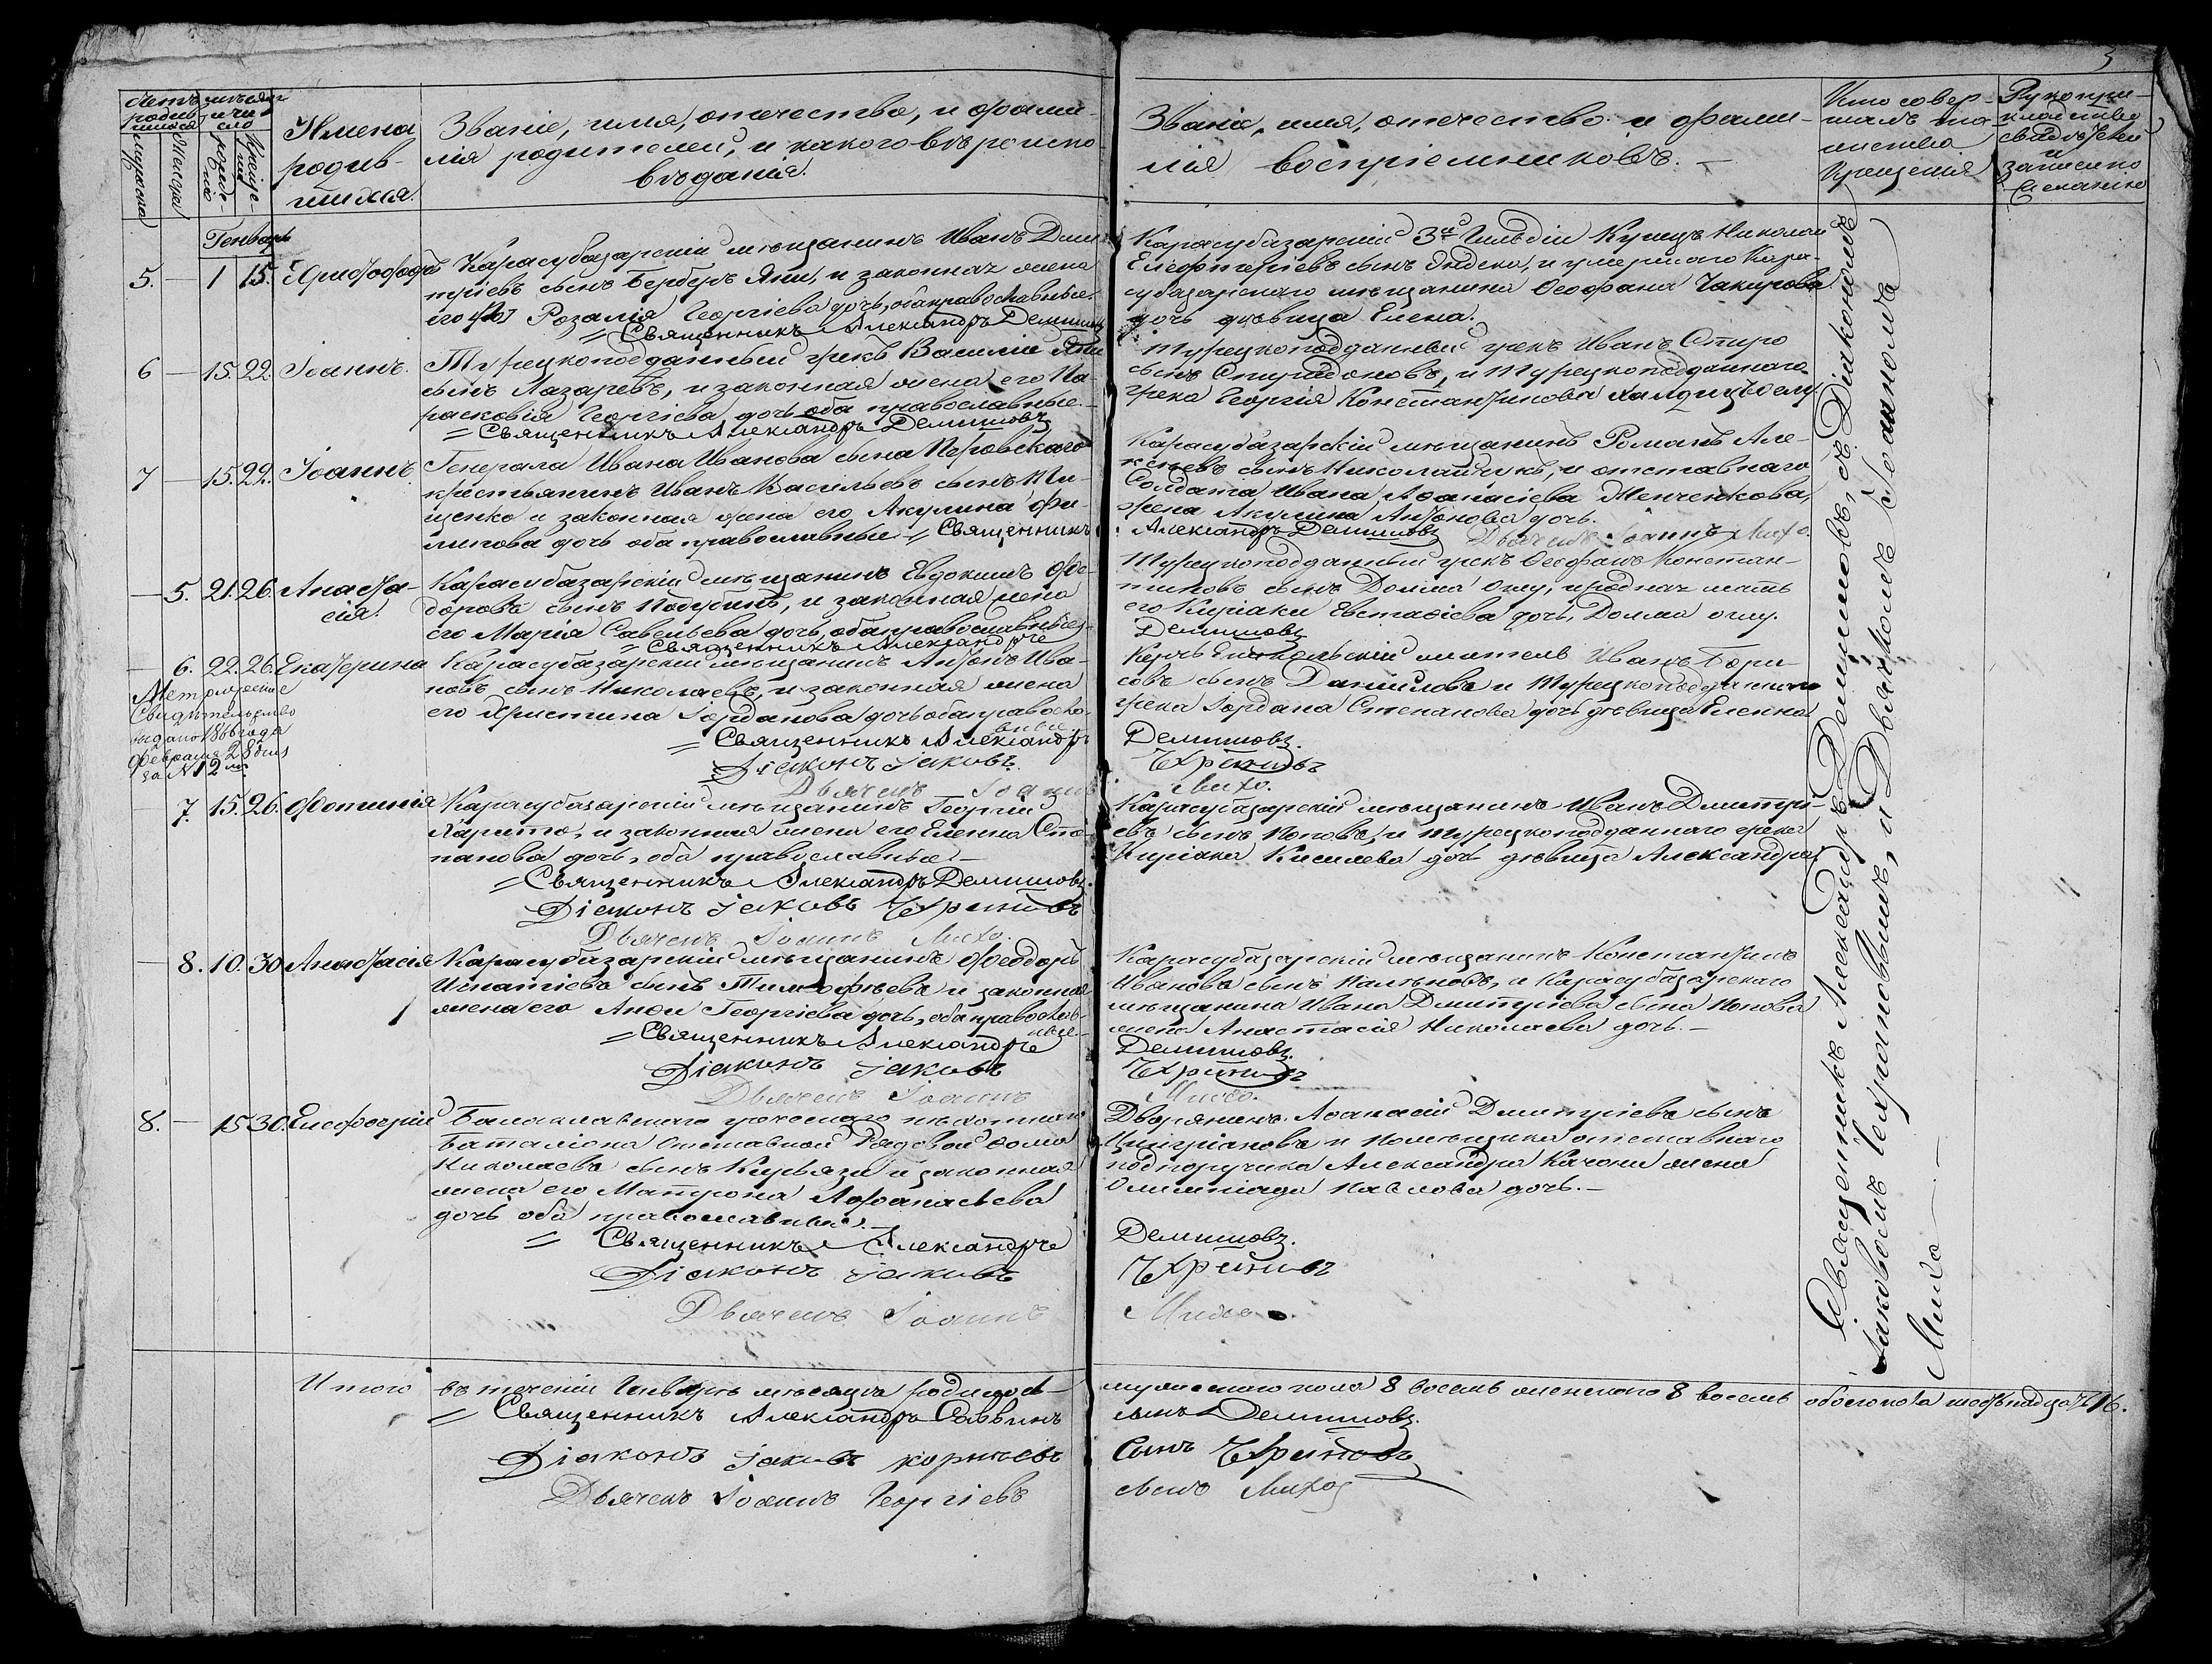 3
Счетъ родившихся
мѣсяцъ и число
мужеска
женска
рожденія
крещенія
Имена родившихся.
Званіе, имя, отечество, и фами-
лія родителей, и какого вѣроиспо-
вѣданія.
Званіе, имя, отечество и фами-
лія воспріемниковъ. —
Кто совер-
шалъ та-
инство
Крещенія
Рукопри-
кладство
свидѣтелей
записано
по желанію
Генварь
5. — 1 15. Христофоръ
Карасубазарскій мѣщанинъ Иванъ Дми-
тріевъ сынъ Берберъ Яни, и законная жена
его Розалія Георгіева дочь, оба православные.
= Священникъ Александръ Демишовъ
Карасубазарскій 3й Гильдіи Купецъ Николай
Елефтеріевъ сынъ и умершаго Кара-
субазарскаго мѣщанина Ѳеофана Чакурова
дочь дѣвица Елена.
6 — 15. 22. Іоаннъ.
Турецкоподданный грекъ Василій Яни
сынъ Лазаревъ, и законная жена его Па-
расковія Георгіева дочь оба православные. —
= Священникъ Александръ Демишовъ
Турецкоподданный грекъ Иванъ Спиро
сынъ Спиридоновъ, и Турецкоподданнаго
грека Георгія Константинова
7 — 15. 22. Іоаннъ.
Генерала Ивана Иванова сына Перовскаго
крестьянинъ Иванъ Васильевъ сынъ Ми-
щенко и законная жена его Акулина Фи-
липова дочь оба православные = Священникъ
Карасубазарскій мѣщанинъ Романъ Але-
ксѣевъ сынъ Николайчикъ, и отставнаго
Солдата Ивана Аѳанасіева Женченкова,
жена Акулина Антонова дочь.
Александръ Демишовъ Дьячекъ Іоаннъ Михо.
— 5. 21. 26. Анаста-
сія.
Карасубазарскій мѣщанинъ Евдокимъ Фе-
доровъ сынъ и законная жена
его Марія Савельева дочь, оба православные
= Священникъ Александръ
Турецкоподданный грекъ Ѳеофанъ Констан-
тиновъ сынъ Долма Оглу, и родная мать
его Киріаки Евстафіева дочь, Долма оглу.
Демишовъ
— 6. 22. 26. Екатерина
Карасубазарскій мѣщанинъ Антонъ Ива-
новъ сынъ Николаевъ, и законная жена
его Христина Іорданова дочь оба правосла-
вные.
= Священникъ Александръ
Діаконъ Іаковъ.
Дьячекъ Іоаннъ
Керчь Ениколскій житель Иванъ Бори-
совъ сынъ Даниловъ и Турецкоподданнаго
грека Іордана Степанова дочь дѣвица Еленка
Демишовъ.
Чехрановъ
Михо.
Метрическое
Свидѣтельство
выдано 1866 года
Февраля 28 дня
за № 12мъ
7. 15. 26. Фотинія
Карасубазарскій мѣщанинъ Георгій
Харито, и законная жена его Елена Сте-
панова дочь, оба православные. —
= Священникъ Александръ Демишовъ.
Діаконъ Іаковъ Чехрановъ
Дьячекъ Іоаннъ Михо.
Карасубазарскій мѣщанинъ Иванъ Дмитрі-
евъ сынъ Поповъ, и турецкоподданнаго грека
Киріака Киселева дочь дѣвица Александра
— 8. 10. 30 Анастасія
Карасубазарскій мѣщанинъ Феодоръ
Игнатіевъ сынъ Тимофѣевъ и законная
жена его Анѳи Георгіева дочь, оба правосла-
вные.
= Священникъ Александръ
Діаконъ Іаковъ
Дьячекъ Іоаннъ
Карасубазарскій мѣщанинъ Константинъ
Ивановъ сынъ и Карасубазарскаго
мѣщанина Ивана Дмитріева сына Попова
жена Анастасія Николаева дочь. —
Демишовъ.
Чехрановъ
Михо.
8. — 15 30. Елефѳерій
Балаклавскаго греческаго пѣхотнаго
баталіона Отставной Рядовой Ѳома
Николаевъ сынъ и законная
жена его Матрона Аѳанасьева
дочь оба православные. —
= Священникъ Александръ
Діаконъ Іаковъ
Дьячекъ Іоаннъ
Дворянинъ Аѳанасій Дмитріевъ сынъ
и помѣщика отставнаго
подпоручика Александра Качони жена
Олимпіада Павлова дочь. —
Демишовъ.
Чехрановъ
Михо
Священникъ Александръ Демишовъ, съ Діакономъ
Іаковомъ Чехрановымъ, и Дьячкомъ Іоанномъ
Михо —
Итого въ теченіи Генваря мѣсяца родилось
мужескаго пола 8 восемь женскаго 8 восемь обоего пола шестьнадцать 16.
= Священникъ Александръ Саввинъ
сынъ Демишовъ.
Діаконъ Іаковъ Корнѣевъ
Сынъ Чехрановъ
Дьячекъ Іоаннъ Георгіевъ
сынъ Михо